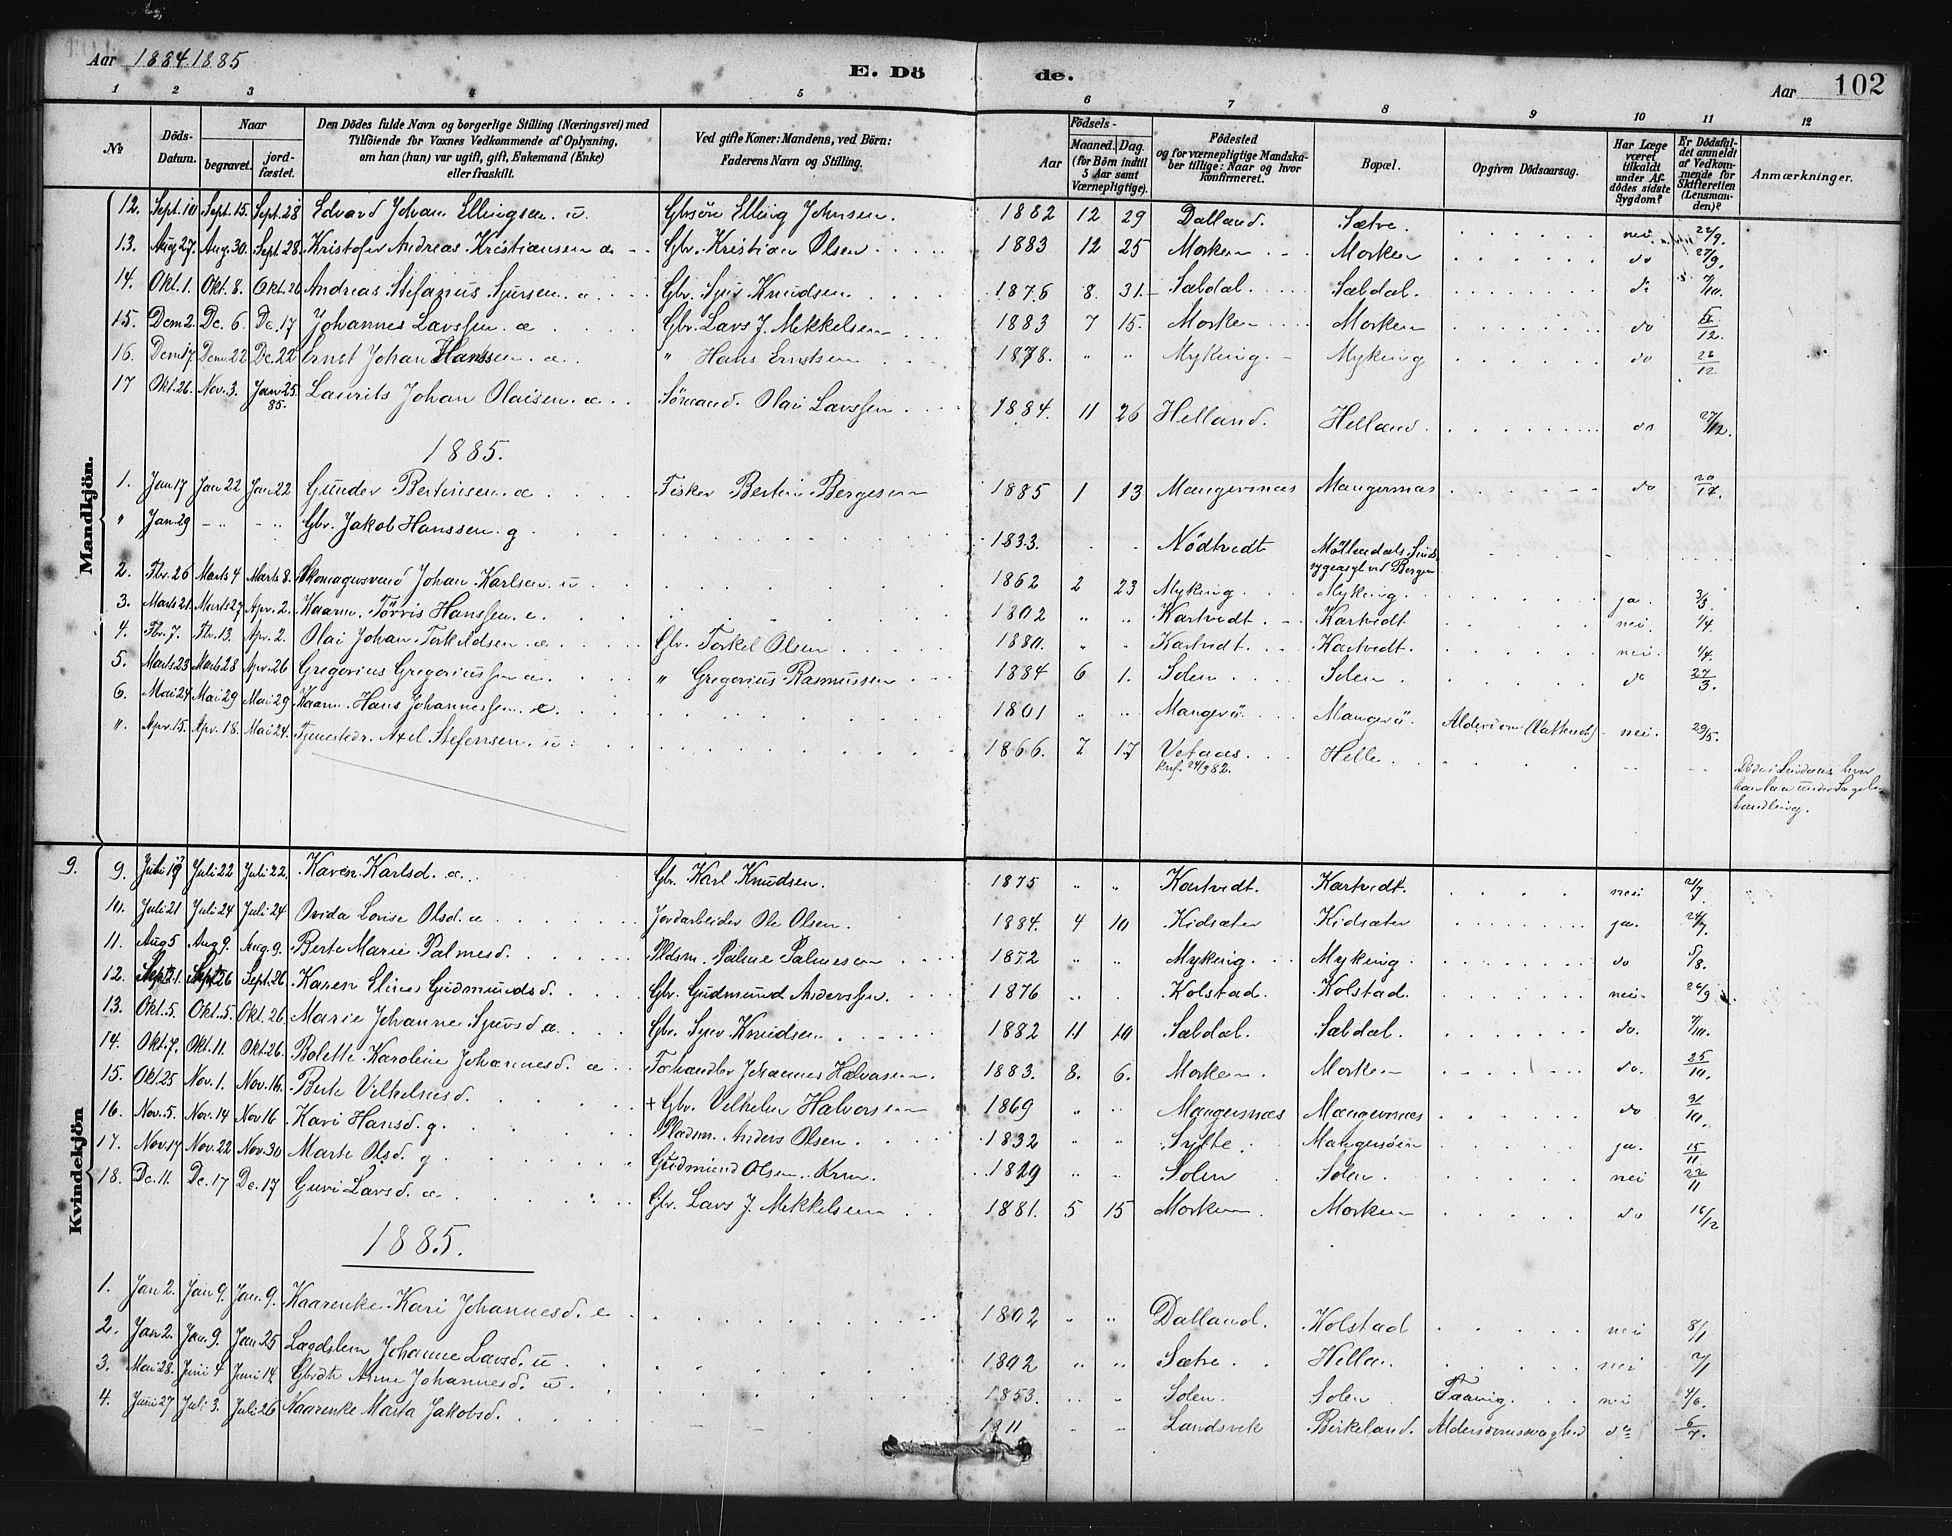 Aar 1884.1885
E. Dö de.
Aar 102
1 2 3 4 5 6 7 8 9 10 11 12
No
Döds-Datum.
Naar
begravet.
jord-fæstet.
Den Dödes fulde Navn og borgerlige Stilling (Næringsvei) med
Tilföiende for Voxnes Vedkommende af Oplysning,
om han (hun) var ugift, gift, Enkemand (Enke)
eller fraskilt.
Ved gifte Koner: Mandens, ved Börn:
Faderens Navn og Stilling.
Födsels-
Aar
Maaned. Dag.
(for Börn indtil
5 Aar samt
Værnepligtige).
Födested
og for værnepligtige Mandska-
ber tillige: Naar og hvor
konfirmeret.
Bopæl.
Opgiven Dödsaarsag.
Har Læge
været
tilkaldt
under Af-
dödes sidste
Sygdom?
Er Dödsfal-
det anmeldt
af Vedkom-
mende for
Skifteretten
(Lensman-
den)?
Anmærkninger.
Mandkjön.
12. Sept. 10 Sept. 15. Sept. 28 Edvard Johan Ellingsen. u. Gbrsön Elling Johnsen. 1882 12 29 Dalland. Sætre. nei. 22/9.
13. Aug. 27. Aug. 30. Sept. 28. Kristofer Andreas Kristiansen æ Gbr. Kristian Olsen 1883 12 25 Morken Morken do 27/9.
14. Okt. 1. Okt. 8. Okt. 26 Andreas Stefanus Sjursen. æ Gbr. Sjur Knudsen. 1876 8. 31. Sæbdal. Sæbdal. do 7/10.
15. Decm 2. Dc. 6. Dc. 17 Johannes Larssen. æ Gbr. Lars J. Mekkelsen 1883 7 15. Morken Morken do 5/12.
16. Decm 17 Decm. 22 Dc. 22 Ernst Johan Hanssen. æ " Hans Ernstsen 1878. " " Myking. Myking do 22/12
17 Okt. 26. Nov. 3. Jan. 25. 85. Laurits Johan Olaisen. æ Sömand. Olai Larssen 1884. 11 26 Helland. Helland. do 27/12.
1885.
1. Jan 17 Jan 22 Jan 22 Gunder Bertinsen. æ Fisker Bertin Bergesen 1885 1 13 Mangersnæs Mangersnæs do 20/17.
" Jan 29 Gbr. Jakob Hanssen. g 1833. Nödtvedt Möllendals Sind-
sygeasyl ved Bergen
2. Fbr. 26 Marts 4 Marts 8. Skomagersvend Johan Karlsen. u 1862 2 23 Myking Myking. ja. 3/3.
3. Marts 21 Marts 27 Apr. 2. Kaarm. Törris Hanssen. e. 1802 " " Kartvedt. Kartvedt nei. 1/4.
4. Fbr. 7. Fbr. 13. Apr. 2. Olai Johan Torkildsen. æ Gbr. Torkel Olsen 1880. " " Kartvedt. Kartvedt. nei. 1/4.
5. Marts 23 Marts 28 Apr. 26 Gregorius Gregoriussen æ " Gregorius Rasmussen 1884 6 1. Solen Solen do 27/3.
6. Mai 24 Mai 29 Mai 29 Kaarm. Hans Johannessen. e. 1801 " " Mangerö. Mangerö. Alderdom (Vattersot) nei. 29/5.
". Apr. 15. Apr. 18. Mai 24. Tjenestedr. Axel Stefensen. u 1866. 7 17 Vetaas Helle
knf. 24/9 82.
Döde i Lindaas hvor
han laa under Lægebe
handling.
Kvindekjön
9. 9. Juli 19 Juli 22 Juli 22. Karen Karlsd. æ Gbr. Karl Knudsen. 1875 " " Kartvedt. Kartvedt. nei 21/7.
10. Juli 21 Juli 24 Juli 24 Ovida Lovise Olsd. æ Jordarbeider Ole Olsen. 1884. 4 10 Kidsæter Kidsæter ja. 24/7.
11. Aug 5 Aug 9. Aug. 9. Berte Marie Palmesd. Pldsm. Palme Palmesen 1872 " " Myking. Myking. do 5/8.
12. Sept. 21. Sept 26 Sept. 26. Karen Elines Gudmundsd. Gbr. Gudmund Anderssen. 1876 " " Kolstad. Kolstad. nei. 26/9
13. Okt. 5. Okt. 5. Okt. 26. Marie Johanne Sjursd æ Gbr. Sjur Knudsen 1882 11 10 Sæbdal. Sæbdal. do. 7/10.
14. Okt. 7. Okt. 11. Okt. 26. Bolette Karoline Johannesd. æ Johannes Halvorsen. 1883. 8. 6. Morken. Morken do. 25/10.
15. Okt. 25 Nov. 1. Nov. 16. Berte Vilhelmsd. + Gbr. Vilhelm Halvorsen 1869 " " Mangersnæs Mangersnæs do 31/10.
16. Nov. 5. Nov. 14 Nov 16 Kari Hansd. g. Pladsm. Anders Olsen. 1832 " " Sylte. Mangersöen ja. 15/11
17. Nov. 17 Nov. 22 Nov. 30 Marte Olsd. g Gudmund Olsen. Krm. 1829 " " Solen Solen. nei 22/11
18. Dc. 11. Dc. 17 Dc. 17 Guri Larsd. æ Gbr. Lars J. Mekkelsen 1881. 5 15 Morken Morken do 16/12
1885.
1. Jan 2. Jan 9. Jan. 9. Kaarenke. Kari Johannesd. e 1802 " " Dalland. Kolstad nei 8/1
2. Jan 2. Jan. 9. Jan 25 Lægdslem Johanne Larsd. u 1802 " " Sætre. Hellan. nei 2/1
3. Mai 28. Juni 4 Juni 14. Gbrdtr Anne Johannesd. u. 1853. Solen. Solen Tæring. nei 4/6.
4. Juni 27 Juli 3. Juli 26 Kaarenke Marta Jakobsd. 1811 Landsvik Birkeland. Alderdomssvaghed do 6/7.